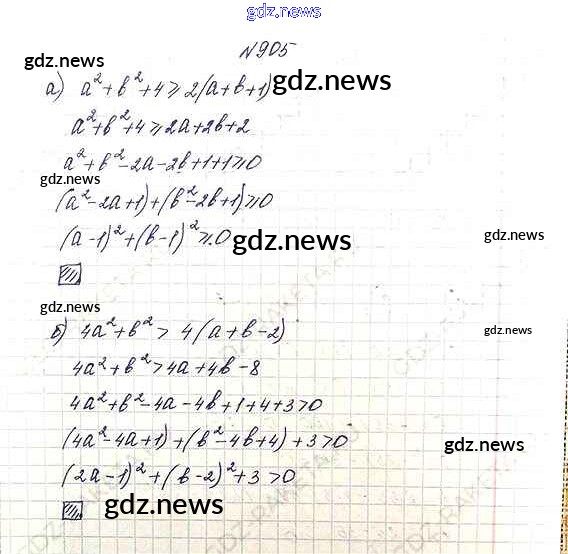 gdz.news
N905
gdz.news
а) a²+b²+4≥2(a+b+1)
gdz.news
a²+b²+4≥2a+2b+2
a²+b²-2a-2b+1+1≥0
gdz.news
(a²-2a+1)+(b²-2b+1)≥0
(a-1)²+(b-1)²≥0
gdz.news
gdz.news
gdz.news
б) 4a²+b²>4(a+b-2)
gdz.news
4a²+b²>4a+4b-8
4a²+b²-4a-4b+1+4+3>0
(4a²-4a+1)+(b²-4b+4)+3>0
gdz.news
(2a-1)²+(b-2)²+3>0
gdz.news